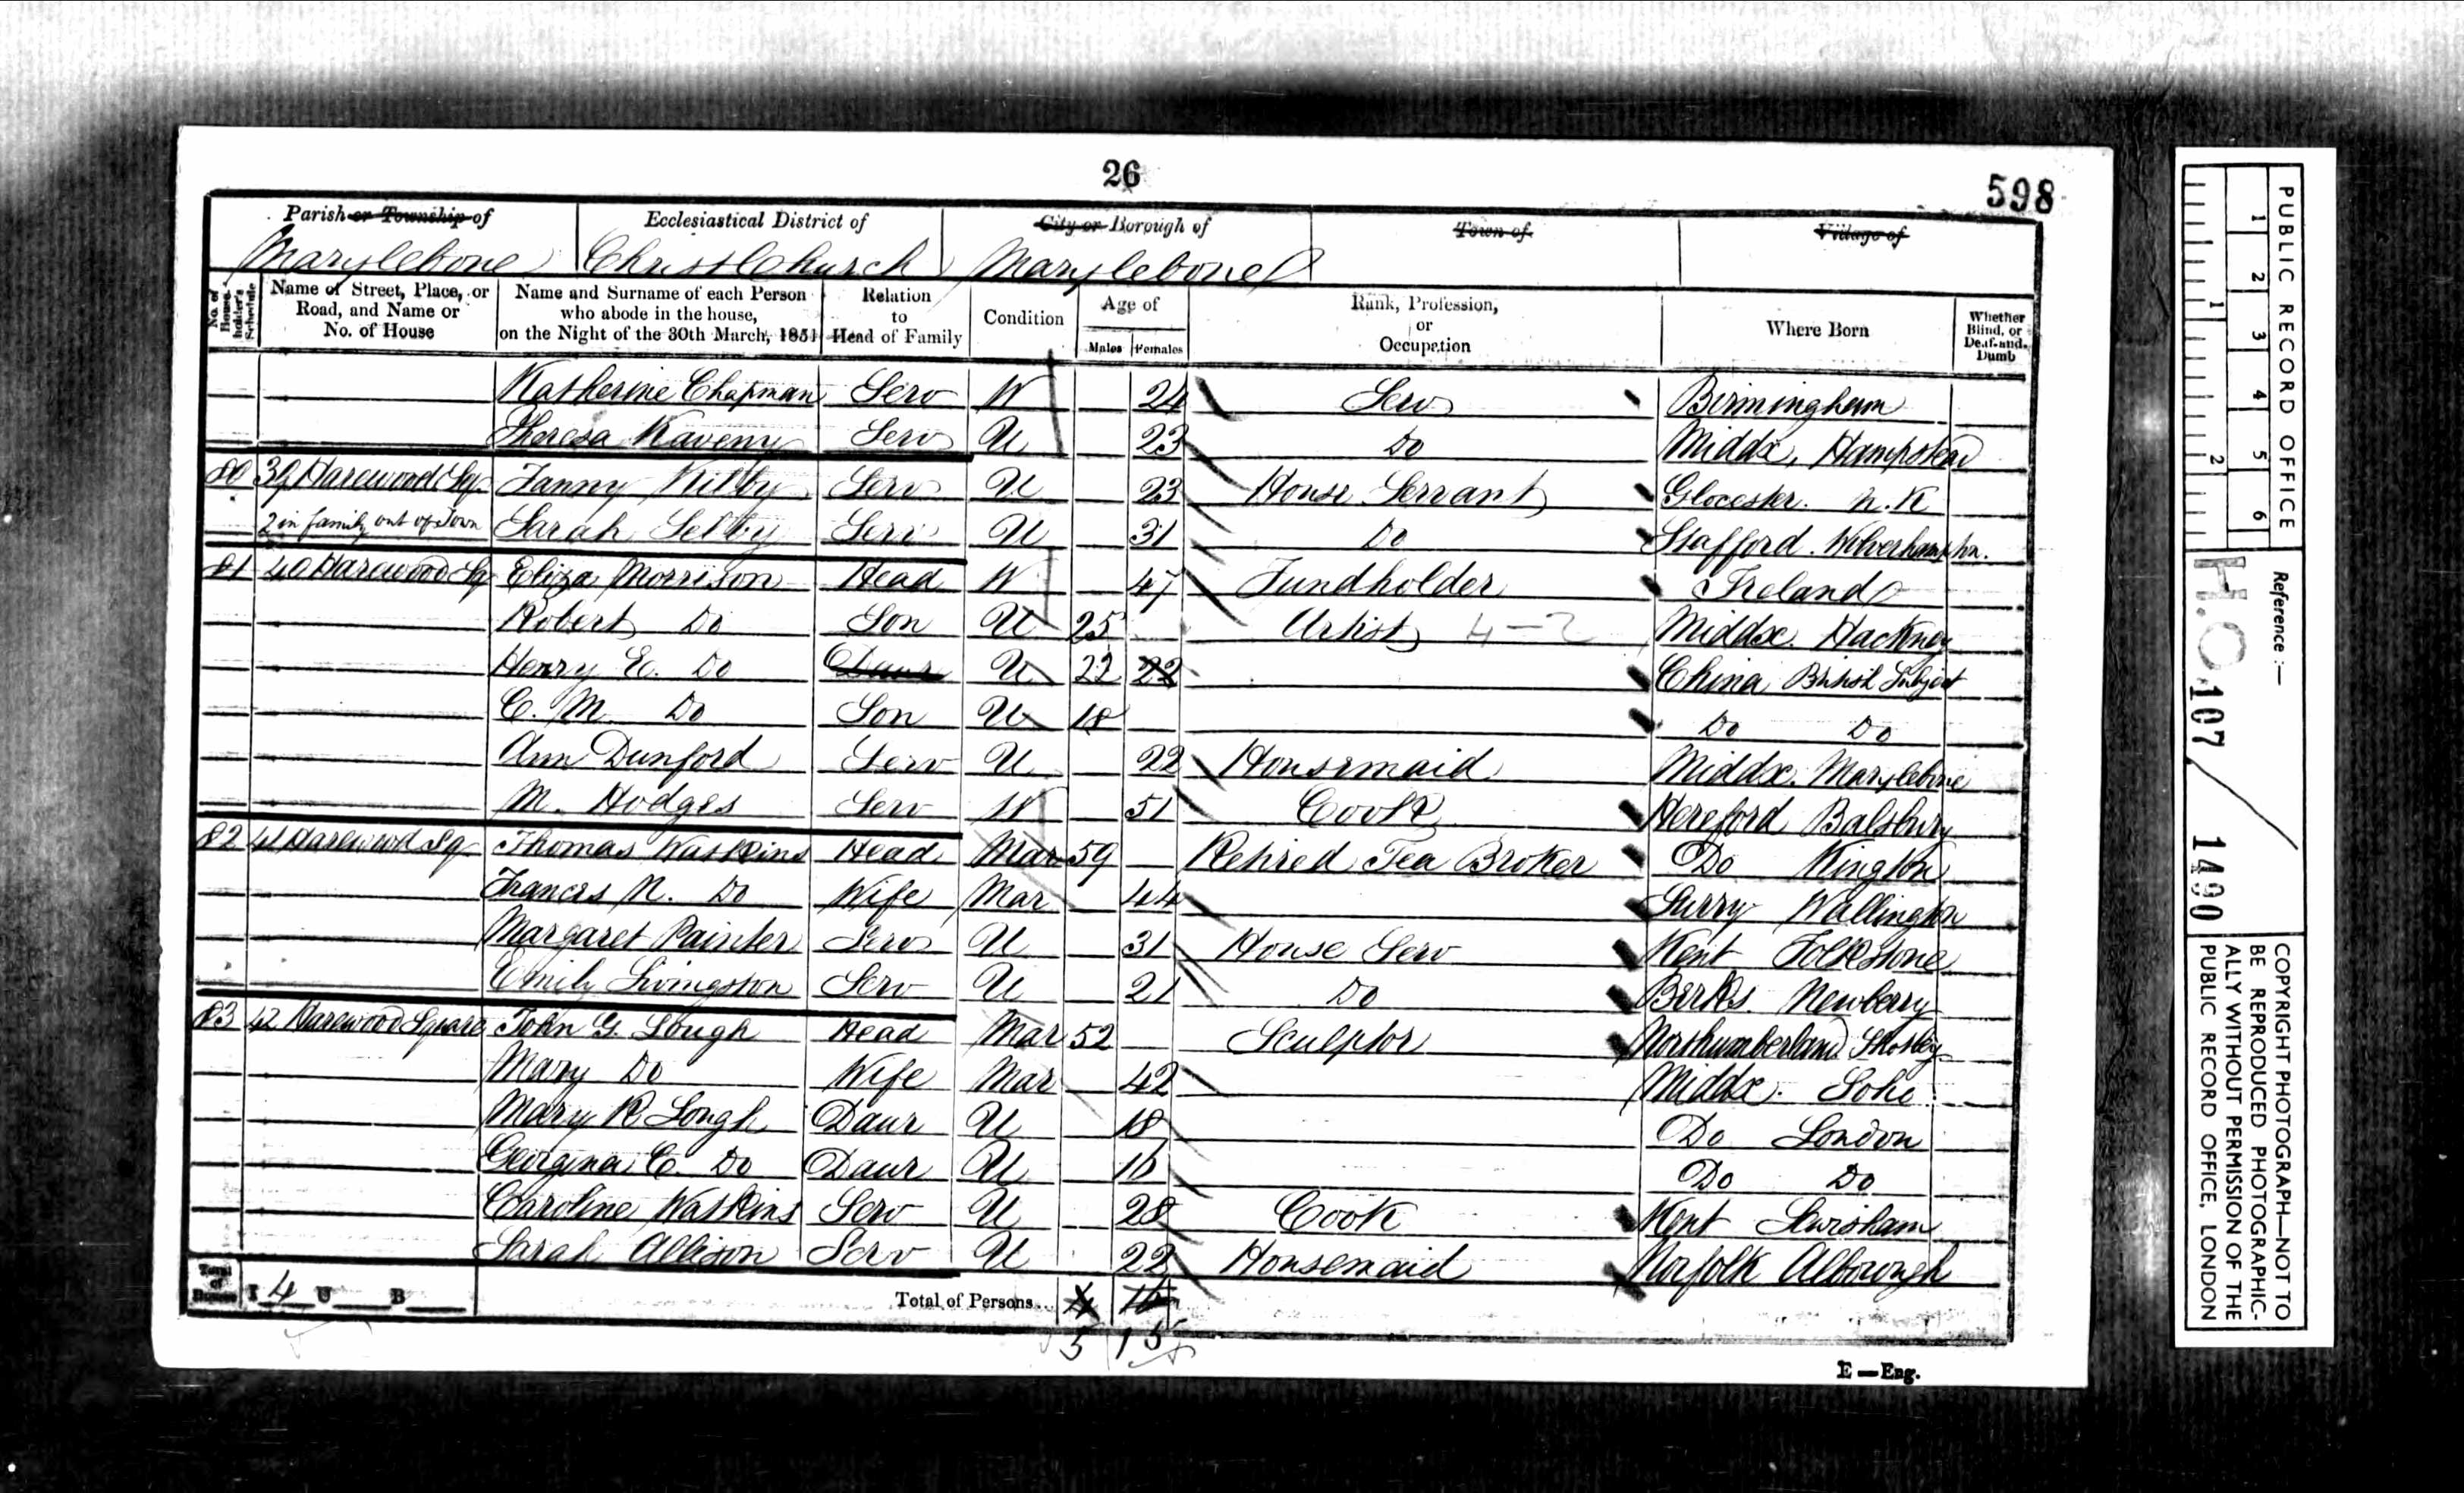 26
598
Parish or Township of
Marylebone
Ecclesiastical District of
Christ Church
City or Borough of
Marylebone
Town of
Village of
No. of House-holder's Schedule
Name of Street, Place, or Road, and Name or No. of House
Name and Surname of each Person who abode in the house, on the Night of the 30th March, 1851
Relation to Head of Family
Condition
Age of
Males Females
Rank, Profession, or Occupation
Where Born
Whether Blind, or Deaf-and-Dumb
Katherine Chapman Serv W 24 Serv Birmingham
Theresa Kaveny Serv U 23 Do Middx. Hampstead
80 39 Harewood Sq Fanny Kilby Serv U 23 House Servant Glocester. N.K
2 in family out of Town Sarah Selby Serv U 31 Do Stafford. Wolverhampton.
81 40 Harewood Sq Eliza Morrison Head W 47 Fundholder Ireland
Robert Do Son U 25 Artist 4-2 Middx. Hackney
Henry E. Do Daur U 22 22 China British Subject
C. M. Do Son U 18 Do Do
Ann Dunford Serv U 22 Housemaid Middx. Marylebone
M. Hodges Serv W 51 Cook Hereford Balsbury
82 41 Harewood Sq Thomas Watkins Head Mar 59 Retired Tea Broker Do Kington
Frances N. Do Wife Mar 44 Surry Wallington
Margaret Painter Serv U 31 House Serv Kent Folkstone
Emily Livingston Serv U 21 Do Berks. Newberry
83 42 Harewood Square John G. Lough Head Mar 52 Sculptor Northumberland Shotley
Mary Do Wife Mar 42 Middx. Soho
Mary R Lough Daur U 18 Do London
Georgina C. Do Daur U 16 Do Do
Caroline Watkins Serv U 28 Cook Kent Lewisham
Sarah Allison Serv U 22 Housemaid Norfolk Alborough
Total of Houses I 4 U B Total of Persons... 4 16
5 15
E—Eng.
PUBLIC RECORD OFFICE
1 2 3 4 5 6
1 2
Reference:-
H.O. 107 / 1490
COPYRIGHT PHOTOGRAPH—NOT TO
BE REPRODUCED PHOTOGRAPHIC-
ALLY WITHOUT PERMISSION OF THE
PUBLIC RECORD OFFICE, LONDON